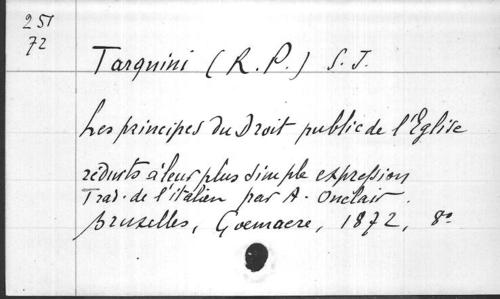 251
72
Tarquini (R. P.) S. J.
Les principes du Droit public de l'Eglise
réduits à leur plus simple expression
Trad. de l'italien par A. Onclair.
Bruxelles, Goemaere, 1872, 8º